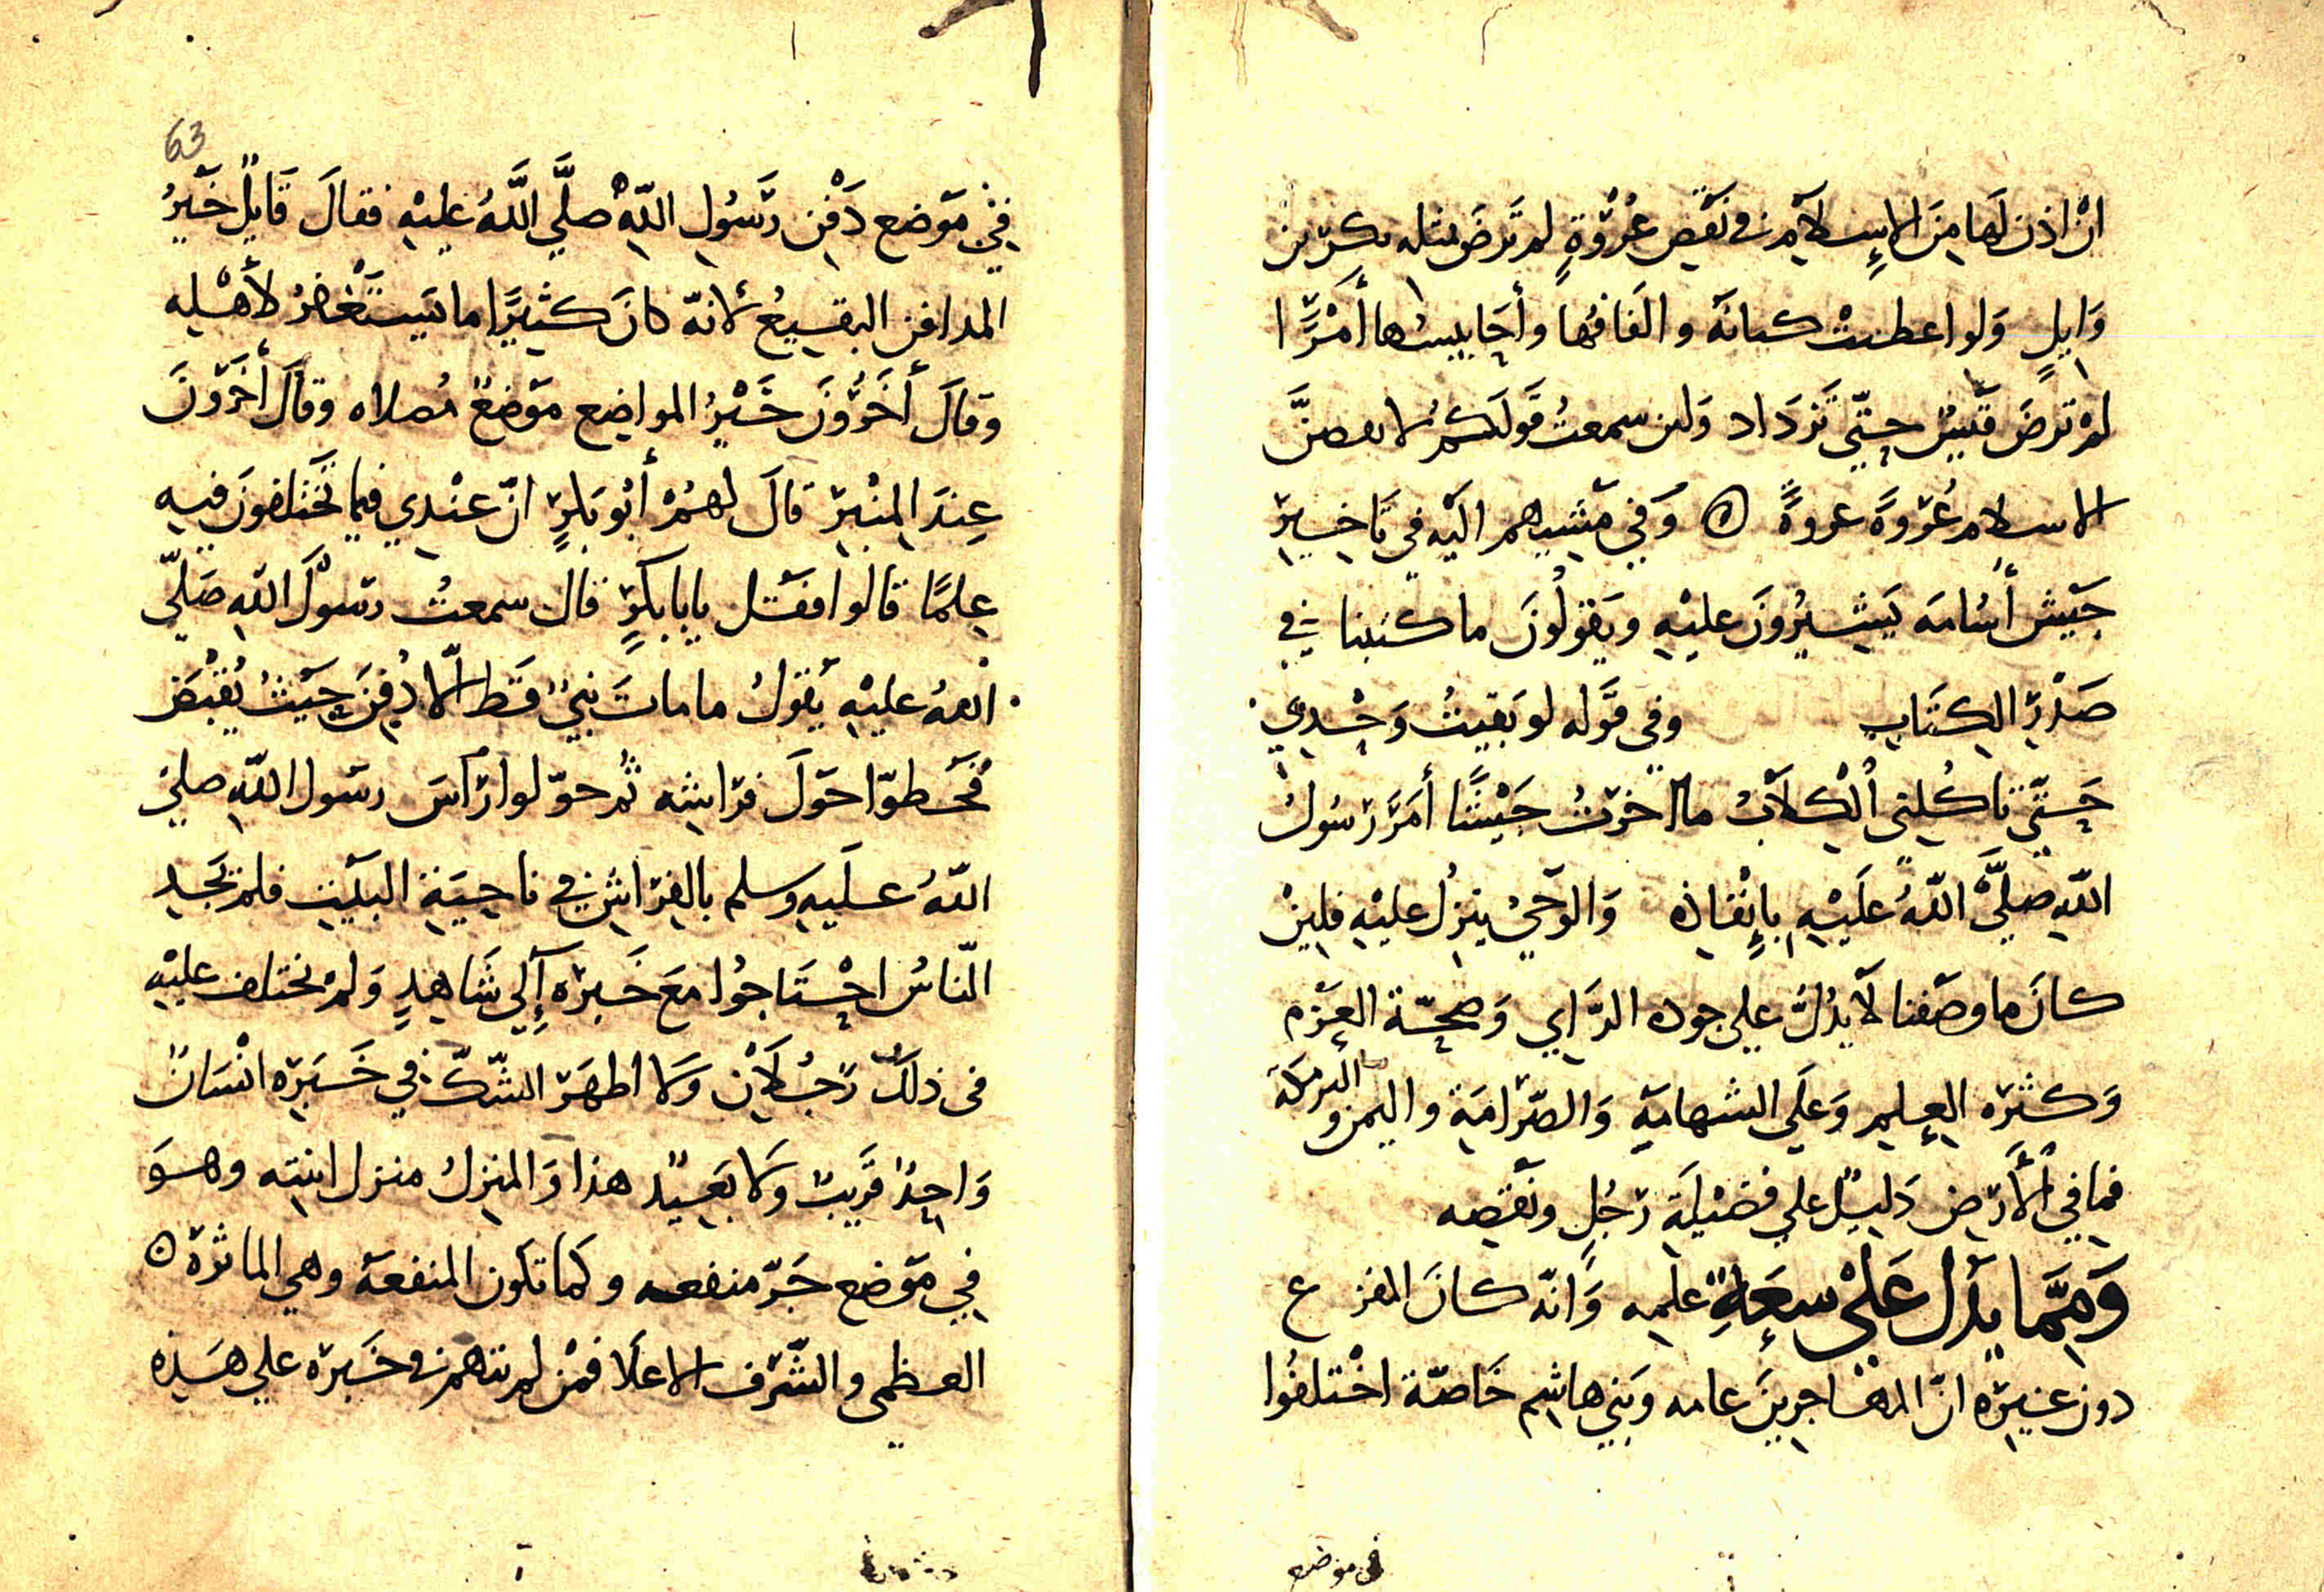 ان اذن لها من الإسلام في نقض عُرْوَةٍ لم ترض بمثله بكر بن
وَايلٍ وَلو اعطيتْ كنانة والفافُها وأحَابيشُها أمْرًا
لم ترضَ قَيسٌ حتّي تَزدَاد وَلين سمعتُ قَولكمْ لا نقضنَّ
الاسلام عُرْوَةً عروةً ه وَفي مَشيهم اليْه في تَاخيرِ
جَيْش أُسَامَه يَشيرُونَ عليْهِ ويَقولُونَ ما كتبنا في
صَدْرِ الكتَابِ وفي قَوْله لو بَقيتُ وَحْدي
حَتّي تاكُلني الْكِلَابُ ما أخرْتُ جَيْشًا أمَرَ رَسُولُ
اللّه صلَّي اللّهُ علَيْهِ بإِنْفاذه وَالوَحْيُ ينزلُ عليْه فلين
كانَ ما وصَفنا لَا يدُلُّ علي جوده الرَّاي وَصِحّة العَزْم
وَكثرَه العِلمِ وَعَلَي الشهامَةِ وَالصّرَامَةِ واليمن والبركة
فما في الْأَرْضِ دَليلٌ علي فضيْلَةِ رَجُلٍ ونَقصِه
وَممَّا يدُل عَلَي سعَةِ علمِه وَانّه كانَ المفزع
دون غيرَه انّ المهاجرينَ عامه وَبَني هاشمٍ خَاصّة اخْتلفُوا
في موضع
63
فِي مَوْضع دَفْنِ رَسُولِ اللّه صلَّي اللَّهُ عليْهِ فقالَ قَايلٌ خَيرُ
المدافن البقيعُ لانهّ كانَ كثيرًا ما يَستَغفرُ لأهْلِه
وَقالَ أخَرُونَ خَيْرُ المواضِع مَوْضعُ مُصلاه وقالَ أخَرُونَ
عِندَ المِنْبرِ قالَ لهُمْ أبُو بَكرٍ انّ عنْدِي فيما تَختلفونَ فيهِ
عِلمًا قالوا فقُل يابا بكرٍ قال سمعتُ رَسُولَ اللّه صَلّي
اللهُ عليْهِ يَقولُ ما ماتَ نبيٌ قَط الّا دُفنَ حَيْثُ يُقْبَض
فَخطوّا حَوْلَ فرَاشِه ثُم حوّلوا رَاسَ رسَول اللّه صلي
اللّهُ علَيهِ وسلم بالفِرَاشِ في ناحيَةِ البَيْت فلم يَجد
النّاسُ احْتَاجُوا معَ خَبرَه إلَي شَاهِدٍ وَلمْ يختلف عليْهِ
في ذلكَ رَجُلَانْ وَلا اظهَر الشّكّ في خَبَرَه انْسَانٌ
وَاحِدٌ قَريبٌ وَلا بَعيدٌ هذا وَالمنزلُ منزل ابنته وهوَ
فِي مَوْضع جَرّ منفعه وكما تكون المنفعة وهي الماثرة ه
العظمي والشّرف الاعلَا فمَنْ لم يتهم في خَبرَه علي هَذِه